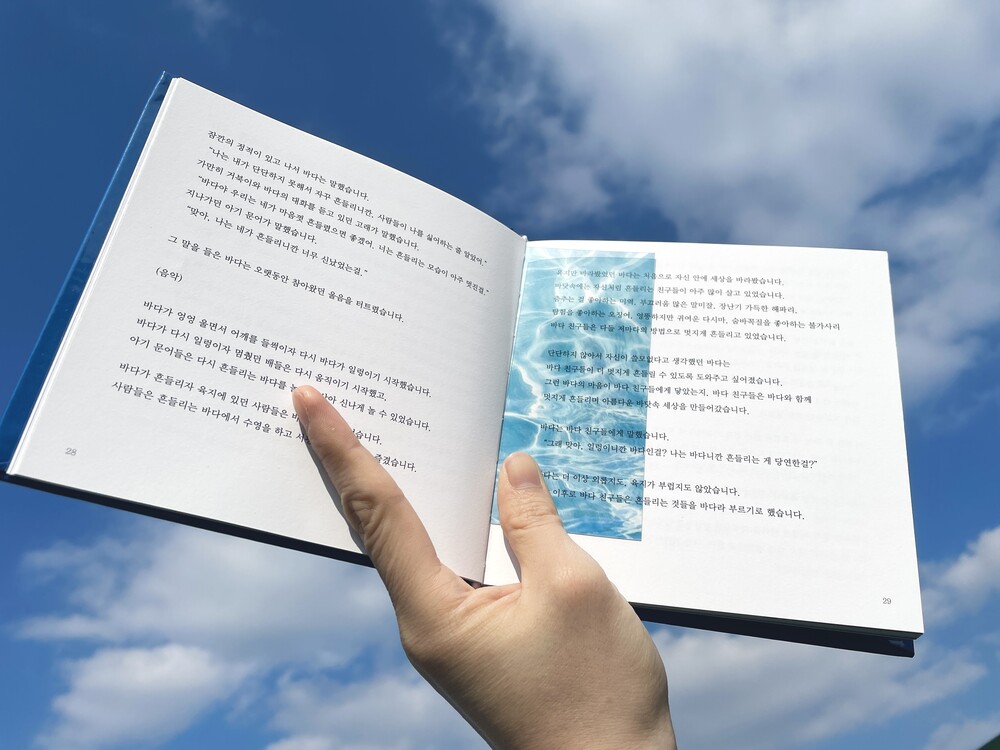 잠깐의 정적이 있고 나서 바다는 말했습니다.
"나는 내가 단단하지 못해서 자꾸 흔들리니깐, 사람들이 나를 싫어하는 줄 알았어."
가만히 거북이와 바다의 대화를 듣고 있던 고래가 말했습니다.
"바다야 우리는 네가 마음껏 흔들렸으면 좋겠어. 너는 흔들리는 모습이 아주 멋진걸."
지나가던 아기 문어가 말했습니다.
"맞아, 나는 네가 흔들리니깐 너무 신났었는걸."
그 말을 들은 바다는 오랫동안 참아왔던 울음을 터트렸습니다.
(음악)
바다가 엉엉 울면서 어깨를 들썩이자 다시 바다가 일렁이기 시작했습니다.
바다가 다시 일렁이자 멈췄던 배들은 다시 움직이기 시작했고,
아기 문어들은 다시 흔들리는 바다를 신나게 놀 수 있었습니다.
바다가 흔들리자 육지에 있던 사람들은
사람들은 흔들리는 바다에서 수영을 하고 즐겼습니다.
28
바라봤었던 바다는 처음으로 자신 안에 세상을 바라봤습니다.
바닷속에는 자신처럼 흔들리는 친구들이 아주 많이 살고 있었습니다.
춤추는 걸 좋아하는 미역, 부끄러움 많은 말미잘, 장난기 가득한 해파리,
탐험을 좋아하는 오징어, 엉뚱하지만 귀여운 다시마, 숨바꼭질을 좋아하는 불가사리
바다 친구들은 다들 저마다의 방법으로 멋지게 흔들리고 있었습니다.
단단하지 않아서 자신이 쓸모없다고 생각했던 바다는
바다 친구들이 더 멋지게 흔들릴 수 있도록 도와주고 싶어졌습니다.
그런 바다의 마음이 바다 친구들에게 닿았는지, 바다 친구들은 바다와 함께
멋지게 흔들리며 아름다운 바닷속 세상을 만들어갔습니다.
바다는 바다 친구들에게 말했습니다.
"그래 맞아, 일렁이니깐 바다인걸? 나는 바다니깐 흔들리는 게 당연한걸?"
더 이상 외롭지도, 육지가 부럽지도 않았습니다.
이후로 바다 친구들은 흔들리는 것들을 바다라 부르기로 했습니다.
29